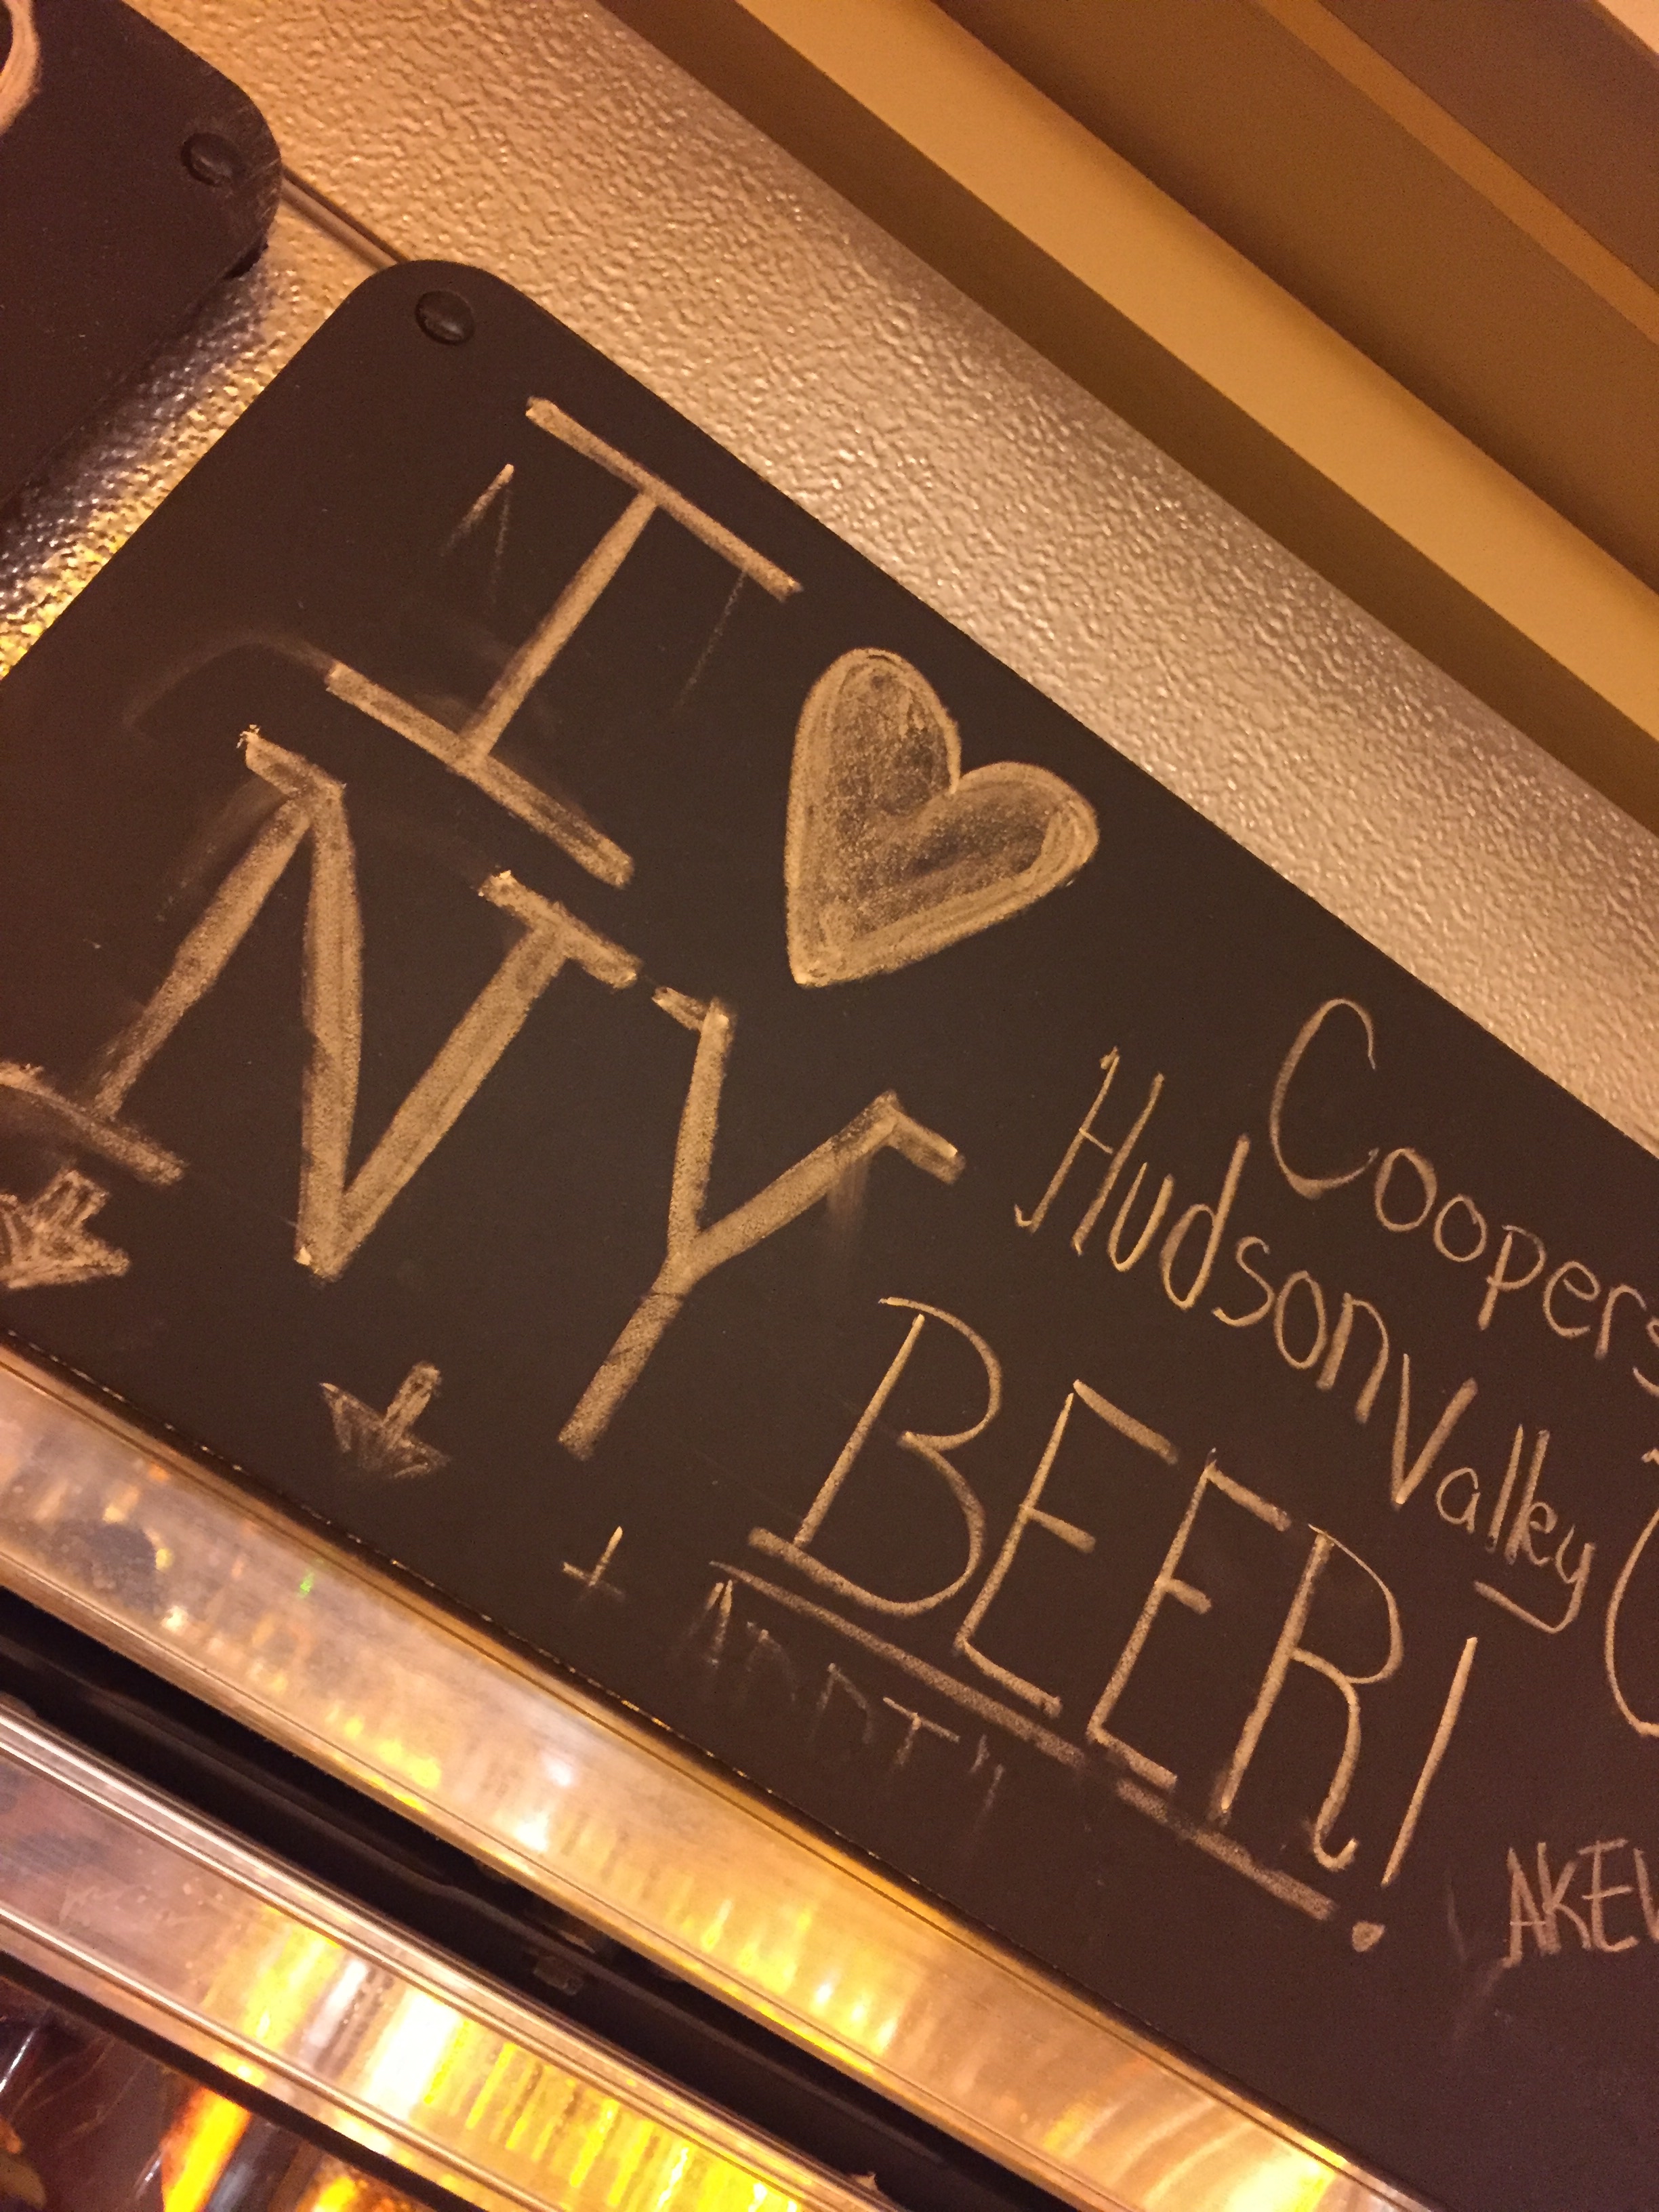 I ♥
NY
BEER!
Coopers
Hudson Valley
AKEW